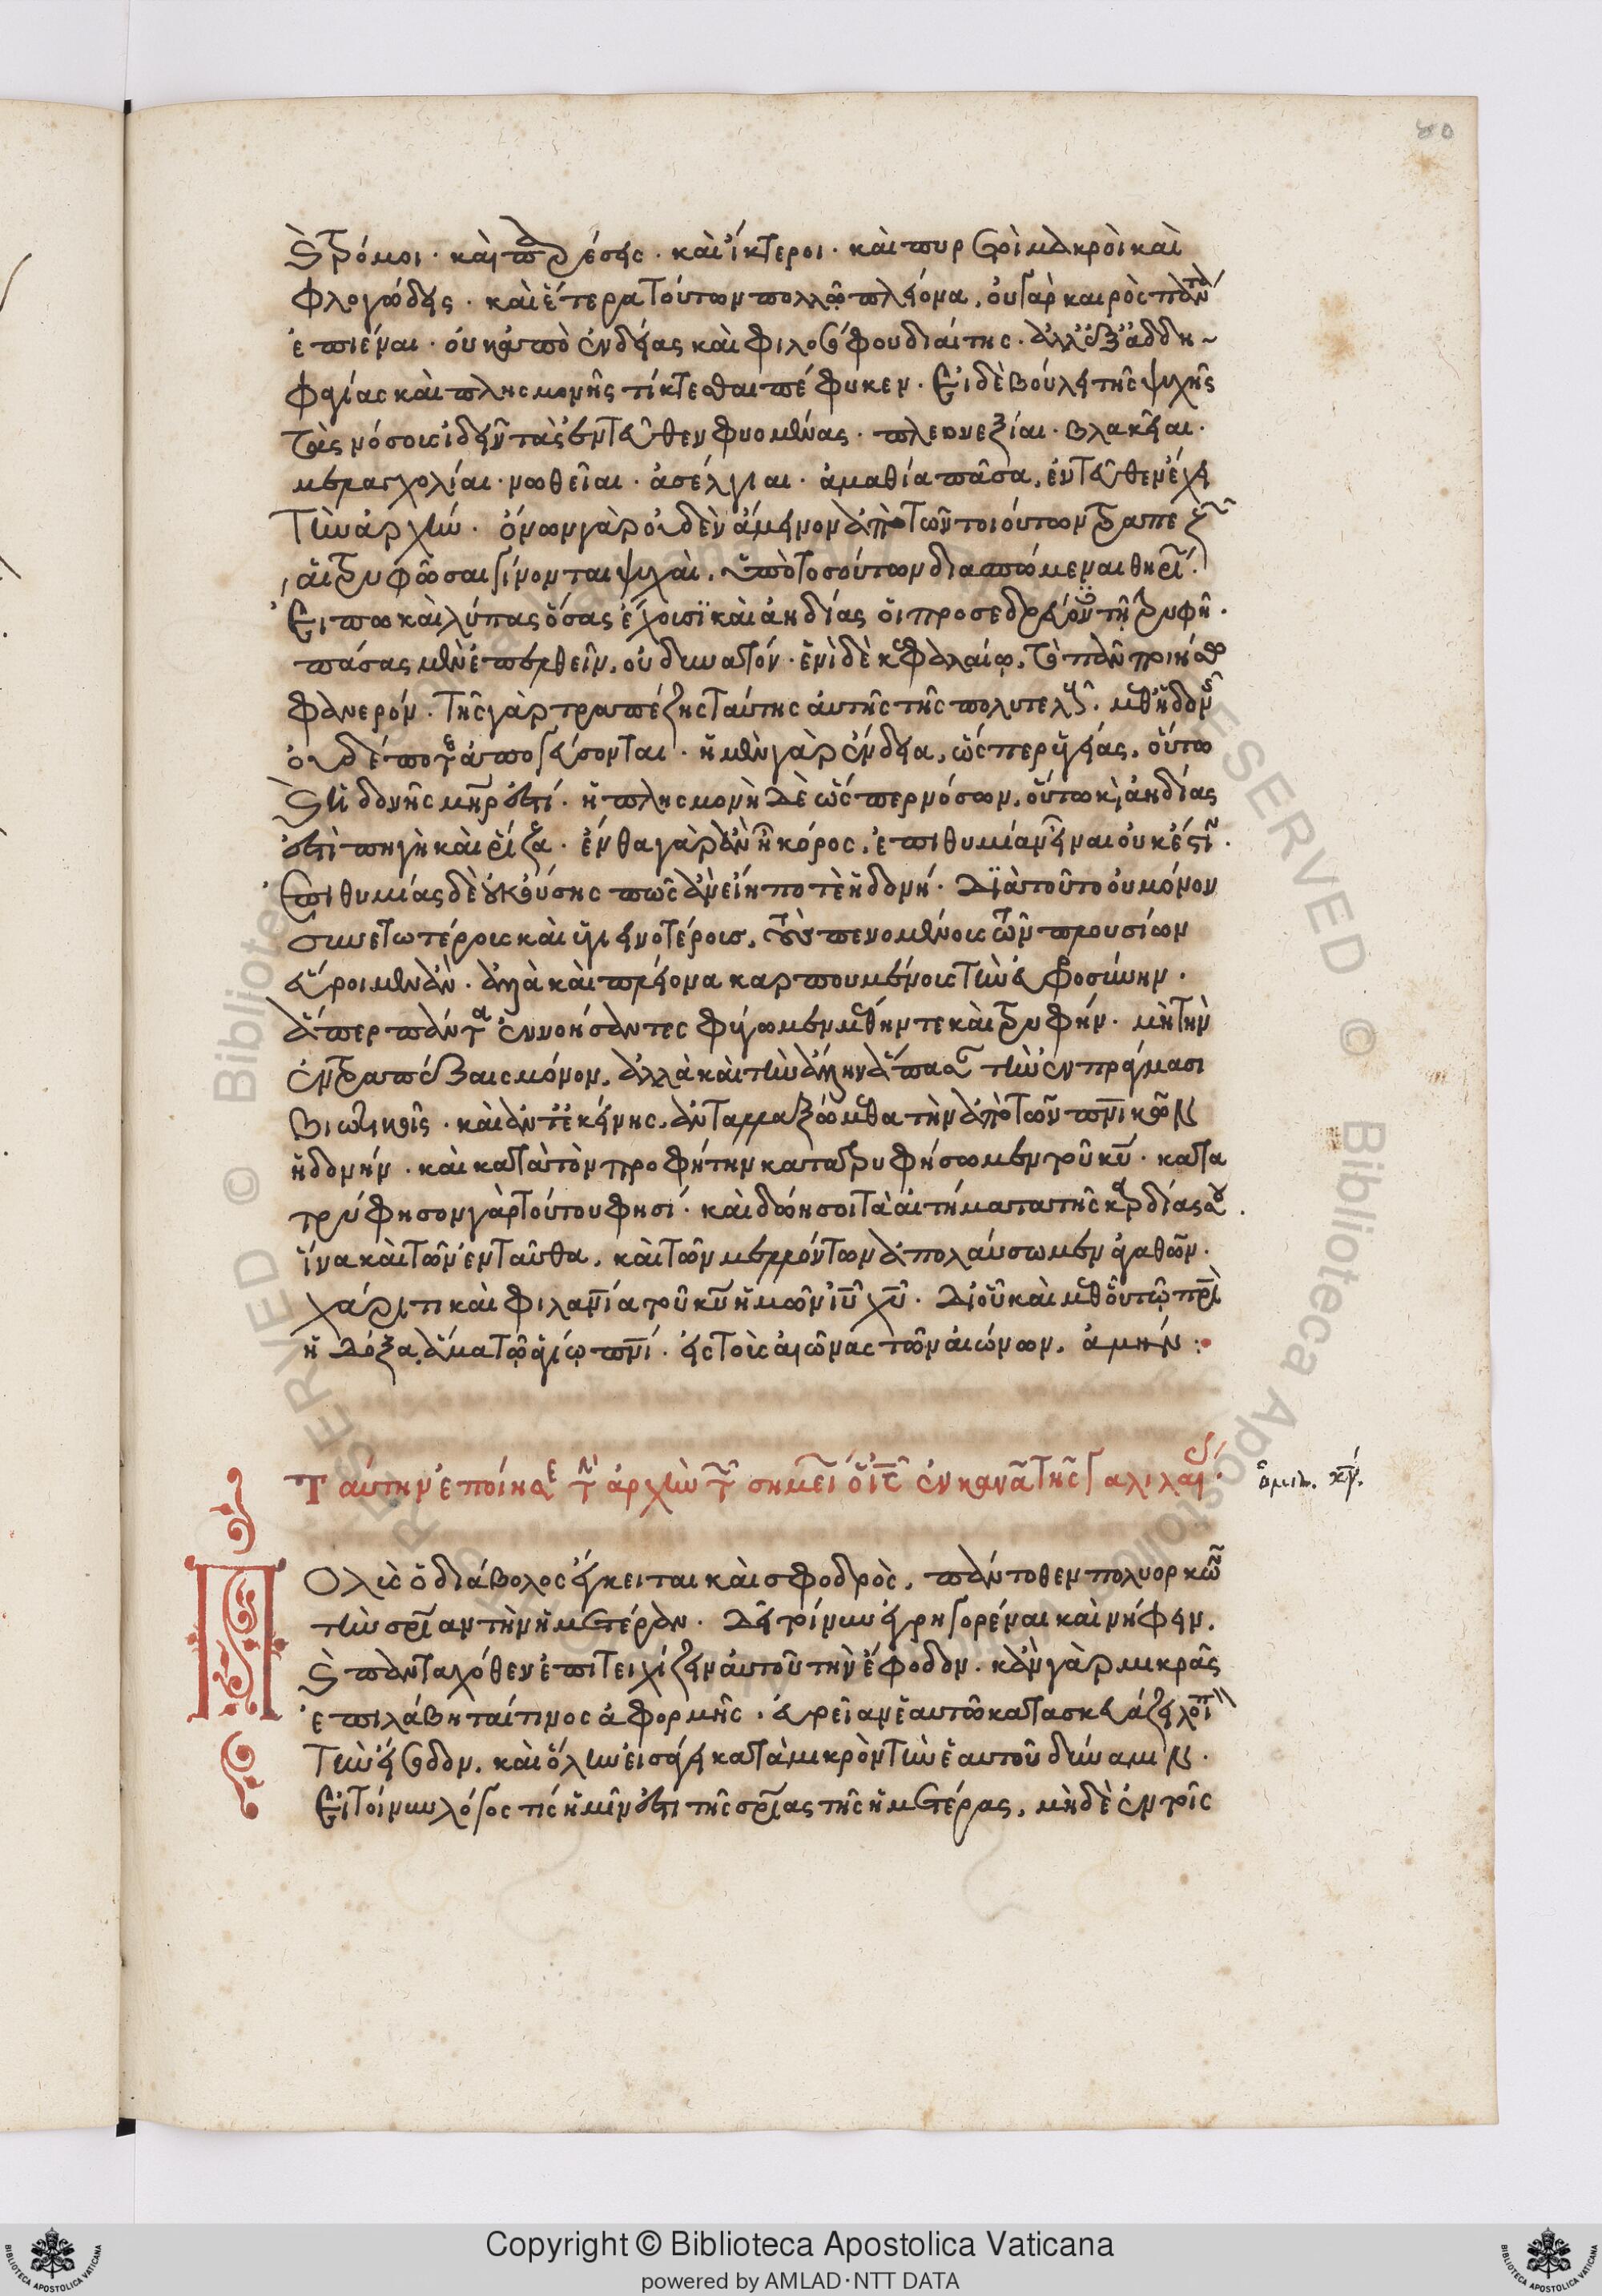 80
καὶ τρόμοι · καὶ παρέσεις · καὶ ἴκτεροι · καὶ πυρετοὶ μακροὶ καὶ
φλογώδεις · καὶ ἕτερα τούτων πολλῷ πλείονα, οὐ γὰρ καιρὸς πάντα
ἐπιέναι · οὐκ ἀπὸ ἐνδείας καὶ φιλοσόφου διαίτης · ἀλλ' ἐξ ἀδδη
φαγίας καὶ πλησμονῆς τίκτεσθαι πέφυκεν · Εἰ δὲ βούλει τῆς ψυχῆς
τὰς νόσους ἰδεῖν τὰς ἐντεῦθεν φυομένας · πλεονεξίαι · βλακεῖαι ·
μελαγχολίαι · νωθεῖαι · ἀσέλγιαι · ἀμαθία πᾶσα, ἐντεῦθεν ἔχει
τὴν ἀρχήν · ὄνων γὰρ οὐδὲν ἄμεινον ἀπὸ τῶν τοιούτων τραπεζῶν
αἱ τρυφῶσαι γίνονται ψυχαί, ὑπὸ τοσούτων διασπώμεναι θηρίων ·
Εἴπω καὶ λύπας ὅσας ἔχουσι καὶ ἀηδίας οἱ προσεδρεύοντες τῇ τρυφῇ ·
πάσας μὲν ἐπελθεῖν, οὐ δυνατόν · ἑνὶ δὲ κεφαλαίῳ, τὸ πᾶν ποιήσω
φανερόν · τῆς γὰρ τραπέζης ταύτης αὐτῆς τῆς πολυτελοῦς, μεθ' ἡδονῆς
οὐδέποτε ἀπογεύσονται · ἡ μὲν γὰρ ἔνδεια, ὥσπερ ὑγείας, οὕτω
καὶ ἡδονῆς μήτηρ ἐστί · ἡ πλησμονὴ δὲ ὥσπερ νόσων, οὕτω καὶ ἀηδίας
ἐστὶ πηγὴ καὶ ῥίζα · ἔνθα γὰρ ἂν ᾖ κόρος, ἐπιθυμίαν εἶναι οὐκ ἔστιν ·
Ἐπιθυμίας δὲ οὐκ οὔσης πῶς ἂν εἴη ποτὲ ἡδονή · Διὰ τοῦτο οὐ μόνον
συνετωτέρους καὶ ὑγιεινοτέρους, τοὺς πενομένους τῶν πλουσίων
εὕροιμεν ἄν · ἀλλὰ καὶ πλείονα καρπουμένους τὴν εὐφροσύνην ·
ἅπερ πάντα ἐννοήσαντες φύγωμεν μέθην τε καὶ τρυφήν · μὴ τὴν
ἐν τραπέζαις μόνον, ἀλλὰ καὶ τὴν ἄλλην ἅπασαν τὴν ἐν πράγμασι
βιωτικοῖς · καὶ ἀντ' ἐκείνης, ἀνταλλαξώμεθα τὴν ἀπὸ τῶν πνικῶν
ἡδονήν · καὶ κατὰ τὸν προφήτην κατατρυφήσωμεν τοῦ κυ · κατα
τρύφησον γὰρ τούτου φησί · καὶ δώῃ σοι τὰ αἰτήματα τῆς καρδίας σου ·
ἵνα καὶ τῶν ἐνταῦθα, καὶ τῶν μελλόντων ἀπολαύσωμεν ἀγαθῶν ·
χάριτι καὶ φιλανία τοῦ κυ ἡμῶν ιυ χυ · Δι' οὗ καὶ μεθ' οὗ τῷ πρι
ἡ δόξα, ἅμα τῷ ἁγίῳ πνι · εἰς τοὺς αἰῶνας τῶν αἰώνων, ἀμήν :
Ταύτην ἐποίησε τὴν ἀρχὴν τῶν σημείων ὁ ις ἐν κανᾶ τῆς γαλιλαίας ·
ὁμιλ. κγ.
Πολὺς ὁ διάβολος ἔγκειται καὶ σφοδρὸς, πάντοθεν πολυορκῶν
τὴν σρίαν τὴν ἡμετέραν · Δεῖ τοίνυν ἐγρηγορέναι καὶ νήφειν,
καὶ πανταχόθεν ἐπιτειχίζειν αὐτοῦ τὴν ἔφοδον · κἂν γὰρ μικρᾶς
ἐπιλάβηταί τινος ἀφορμῆς, εὐρεῖαν ἑαυτῷ κατασκευάζει λοιπὸν
τὴν εἴσοδον, καὶ ὅλην εἰσάγει κατὰ μικρὸν τὴν ἑαυτοῦ δύναμιν ·
Εἰ τοίνυν λόγος τίς ἡμῖν ἐστι τῆς σρίας τῆς ἡμετέρας, μηδὲ ἐν τοῖς
Copyright © Biblioteca Apostolica Vaticana
powered by AMLAD·NTT DATA